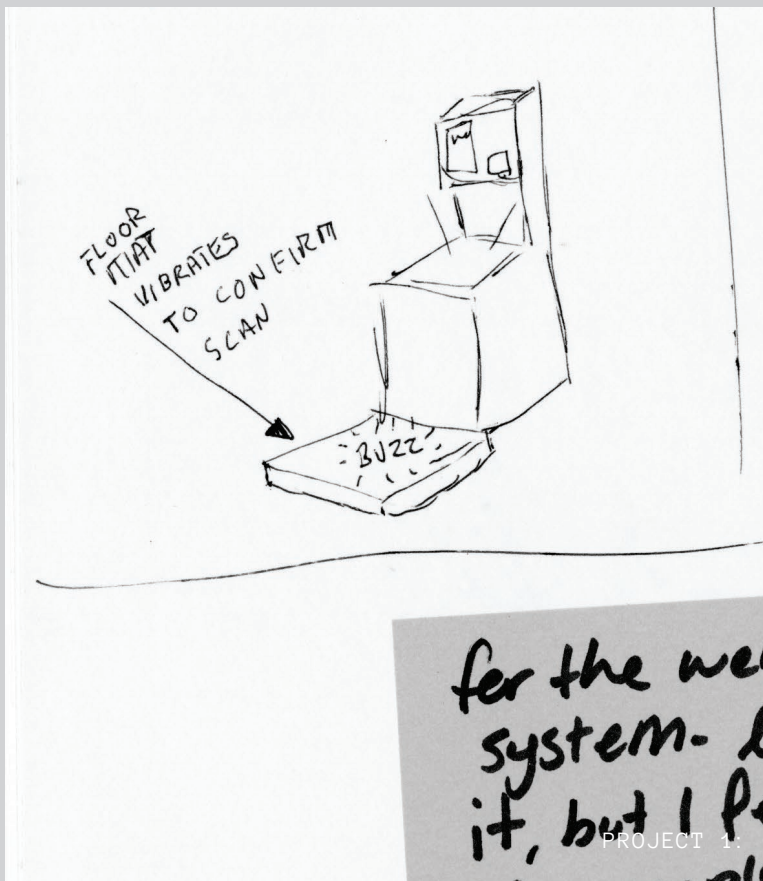 FLOOR
MAT
VIBRATES
TO CONFIRM
SCAN
BUZZ
fer the
system.
it, but I
PROJECT 1: